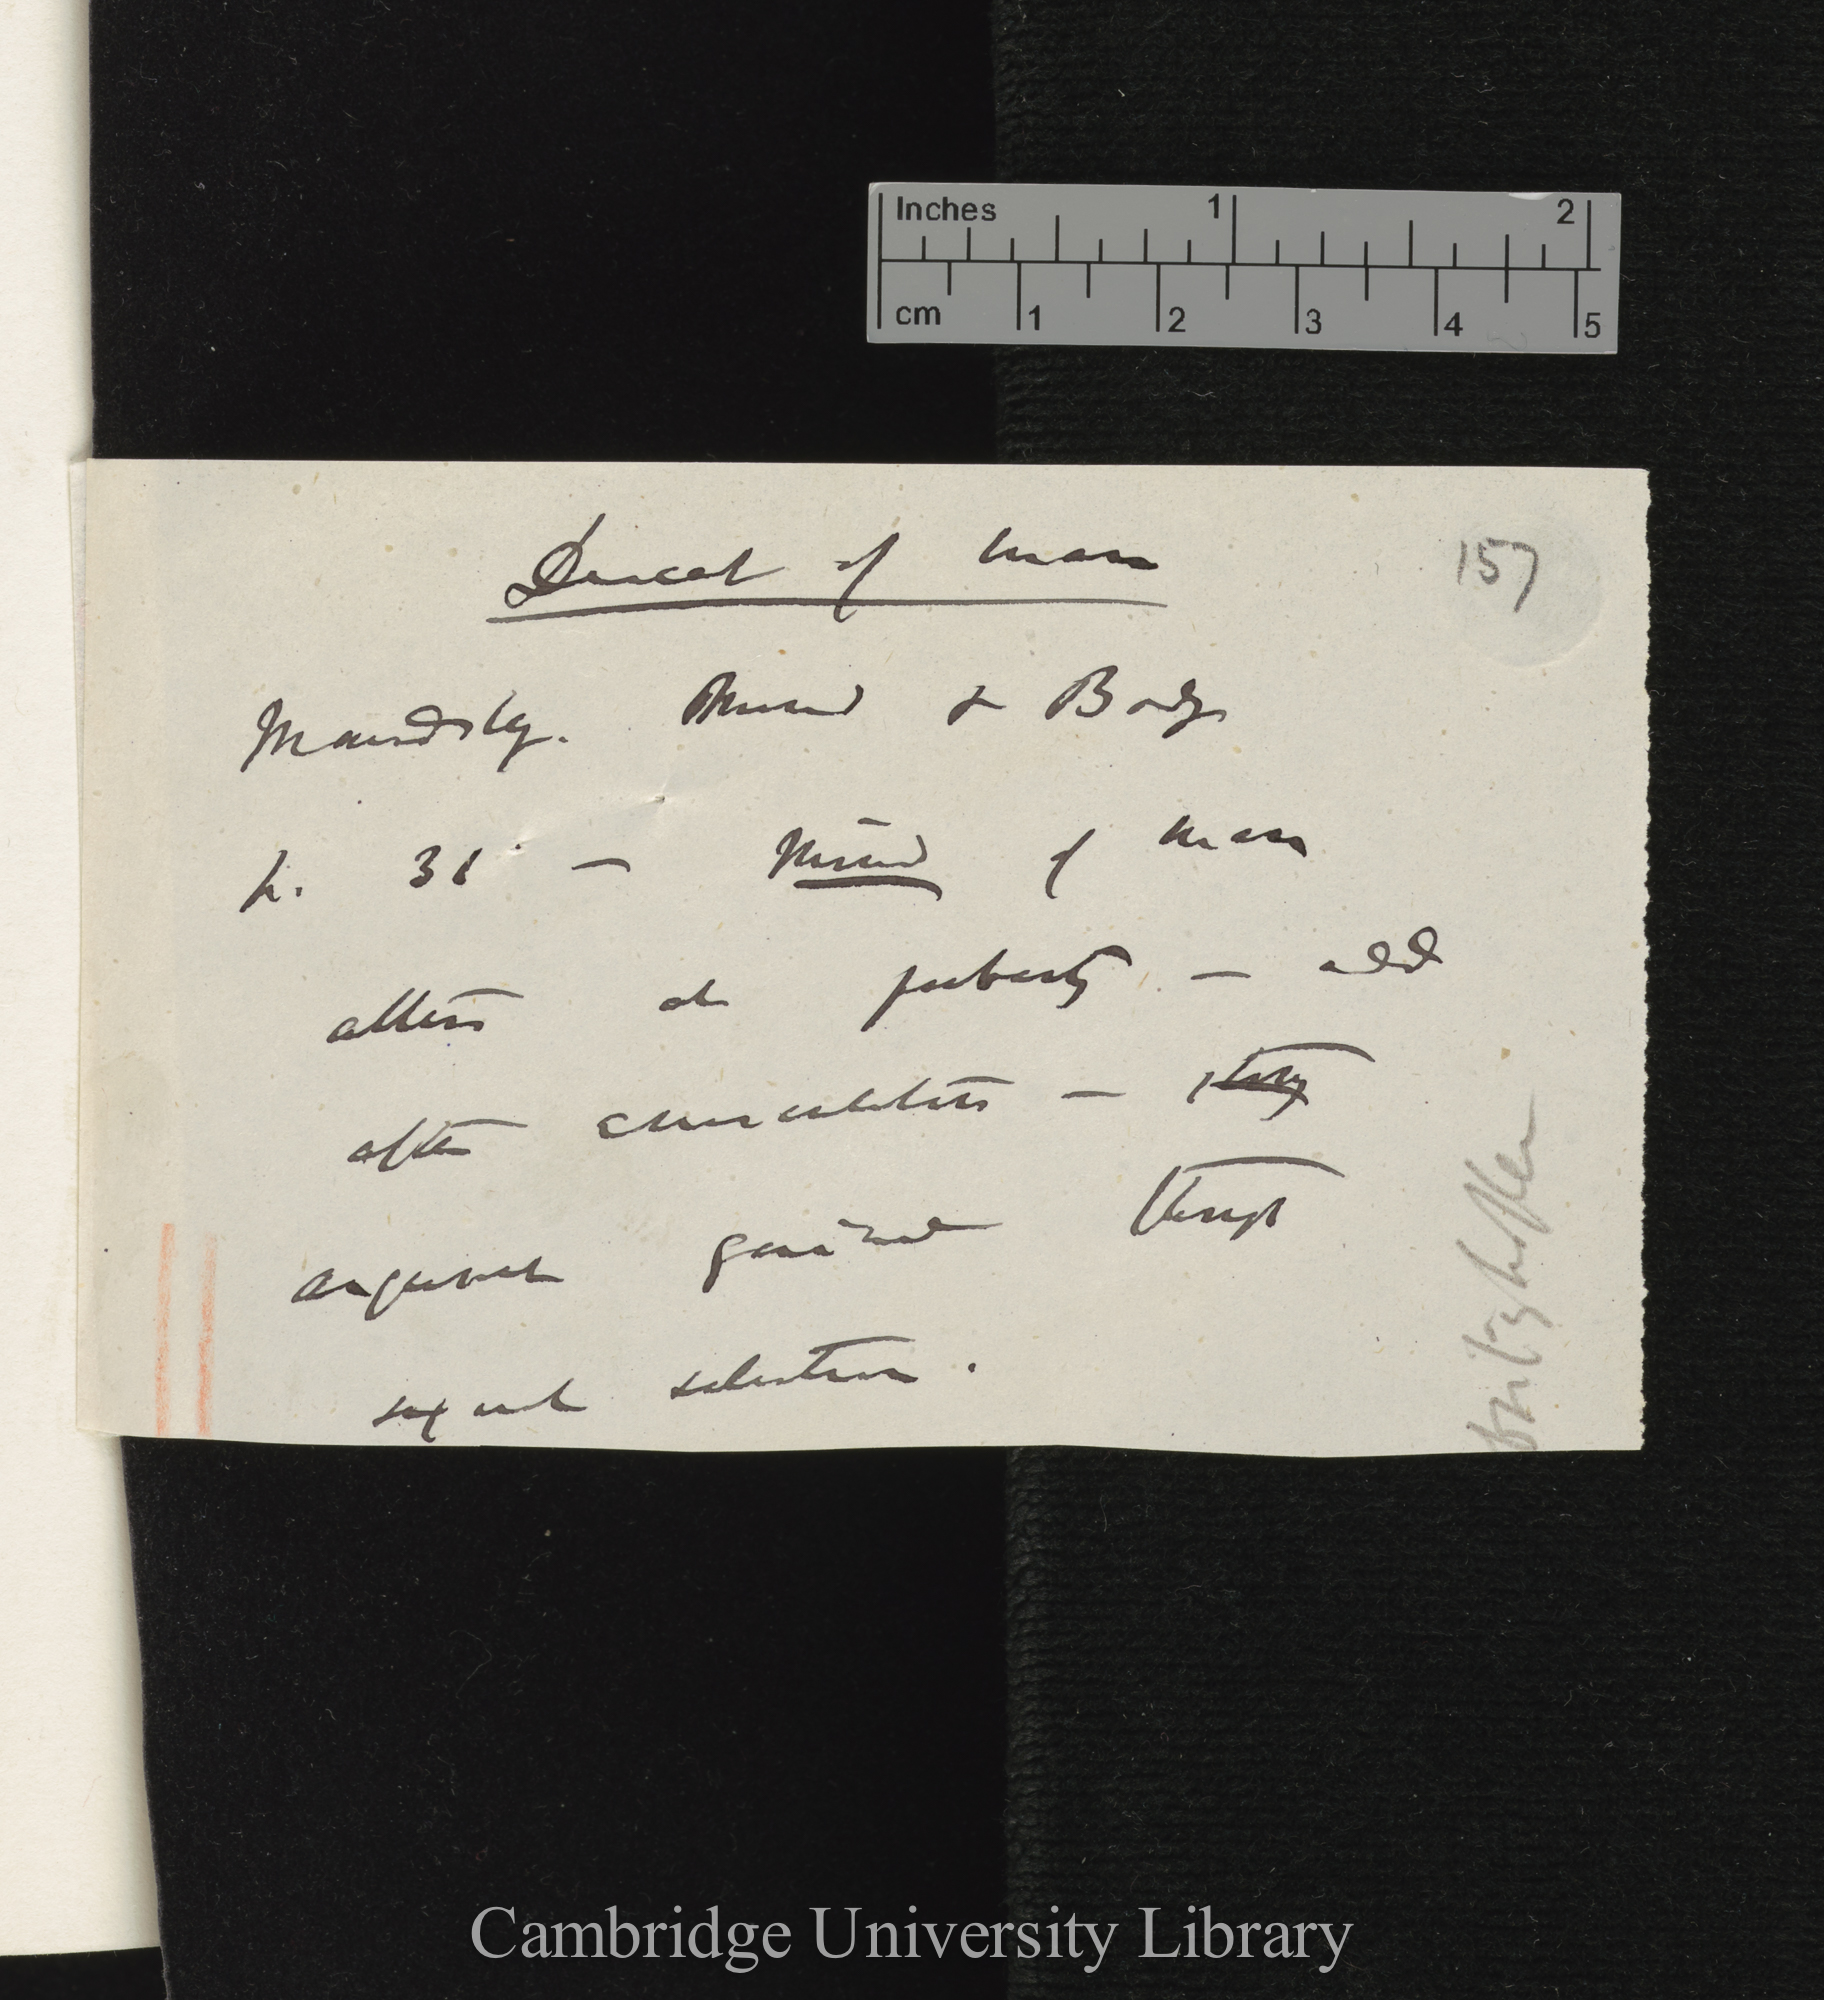 Inches 1 2
cm 1 2 3 4 5
157
Descent of Man
Maudsley. Mind & Body
p. 31 — Mind of man
alters at puberty — add
after emasculation —
argument gained through
sexual selection.
Cambridge University Library